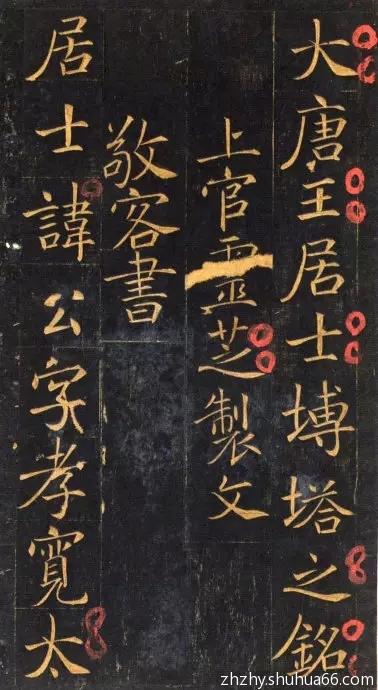 大唐王居士塼塔之銘
上官靈芝製文
敬客書
居士諱公字孝寬太
zhzhy.shuhua66.com